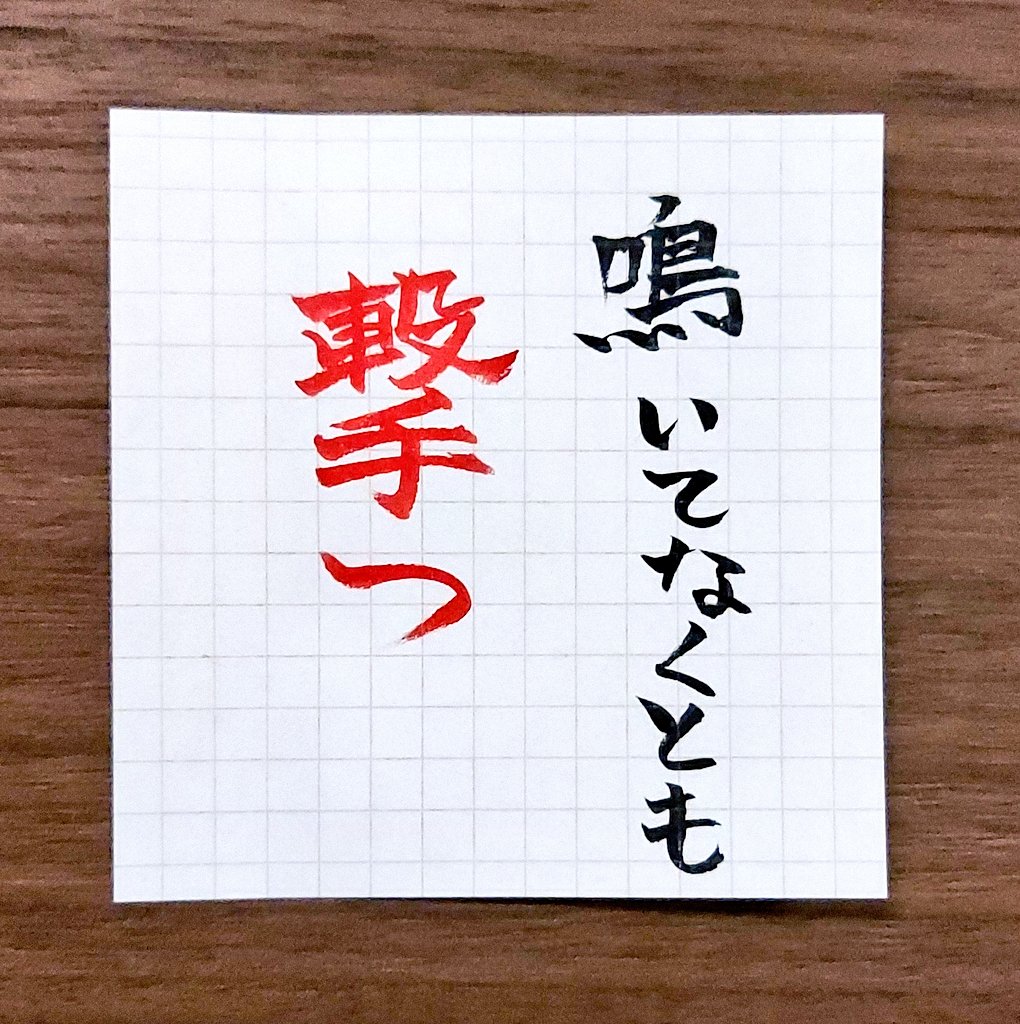 鳴いてなくとも
撃つ